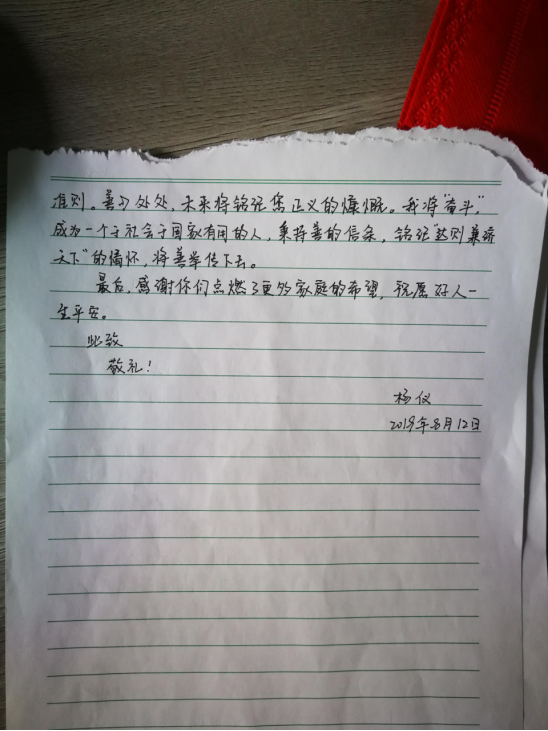 准则。善习处处,未来将铭记您正义的慷慨。我将"奋斗",
成为一个于社会于国家有用的人,秉持善的信条,铭记"达则兼济
天下"的情怀,将善举传下去。
最后,感谢你们点燃了更多家庭的希望,祝愿好人一
生平安。
此致
敬礼!
杨仪
2019年8月12日